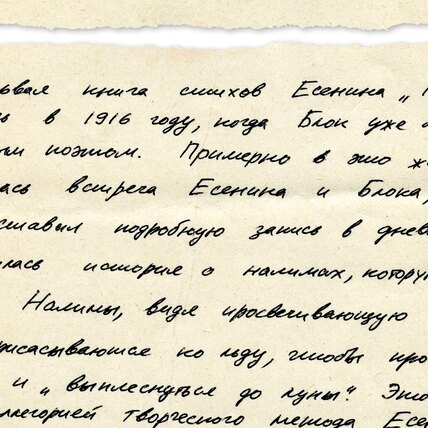 рвая книга стихов Есенина „
в 1916 году, когда Блок уже
ым поэтом. Примерно в это ж
лась встреча Есенина и Блока,
ставил подробную запись в днев
лась история о налимах, котору
Налимы, видя просвечивающую
рисасываются ко льду, чтобы про
и „выплеснуться до луны". Это
ллегорией творческого метода Есен